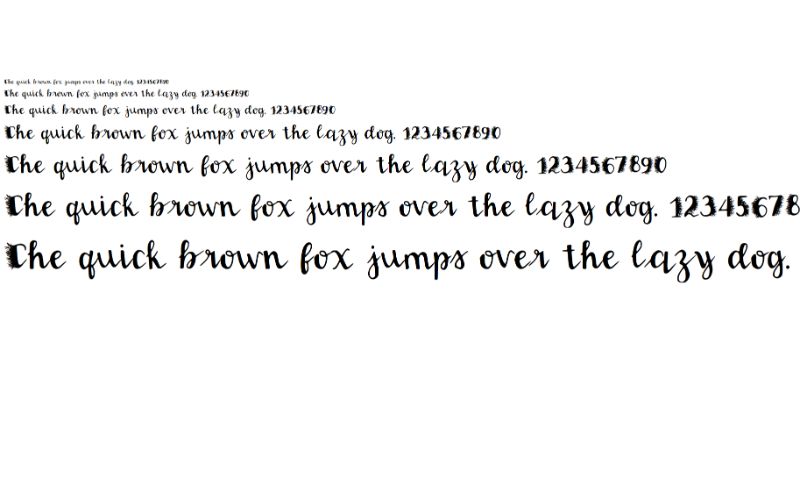 The quick brown fox jumps over the lazy dog. 1234567890
The quick brown fox jumps over the lazy dog. 1234567890
The quick brown fox jumps over the lazy dog. 1234567890
The quick brown fox jumps over the lazy dog. 1234567890
The quick brown fox jumps over the lazy dog. 1234567890
The quick brown fox jumps over the lazy dog. 12345678
The quick brown fox jumps over the lazy dog.